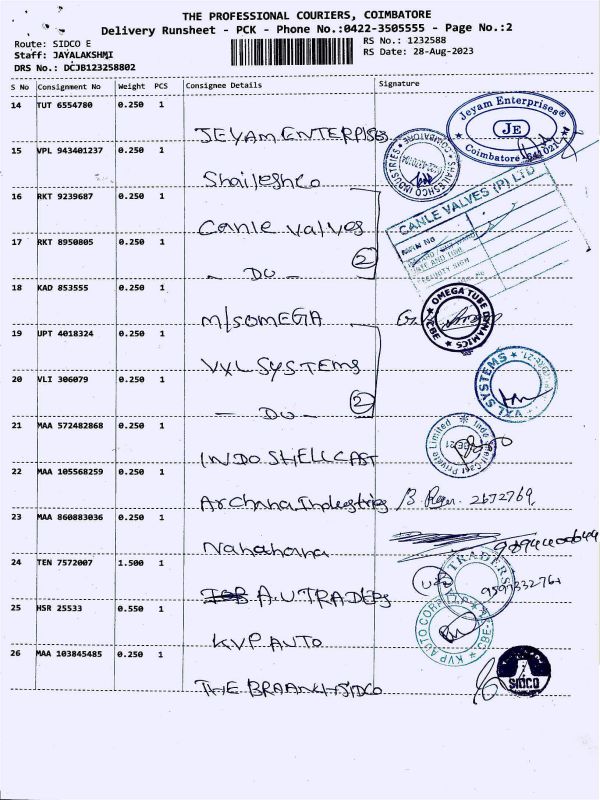 THE PROFESSIONAL COURIERS, COIMBATORE
Delivery Runsheet - PCK - Phone No.:0422-3505555 - Page No.:2
Route: SIDCO E
RS No.: 1232588
Staff: JAYALAKSHMI
RS Date: 28-Aug-2023
DRS No.: DCJB123258802
S No Consignment No Weight PCS Consignee Details Signature
14 TUT 6554780 0.250 1
JEYAM ENTERPRISES
Jeyam Enterprises®
JE
Coimbatore
15 VPL 943401237 0.250 1
Shaileshco
SHAILESHCO INDUSTRIES
COIMBATORE
16 RKT 9239687 0.250 1
Canle valves
CANLE VALVES (P) LTD
17 RKT 8950805 0.250 1
- DO -
2
18 KAD 853555 0.250 1
M/S OMEGA
OMEGA TUBE DYNAMICS
CBE
19 UPT 4018324 0.250 1
VXL SYSTEMS
VXL SYSTEMS
20 VLI 306079 0.250 1
- DO -
2
21 MAA 572482868 0.250 1
INDO SHELLCAST
Indo Shell Cast Private Limited
22 MAA 105568259 0.250 1
Archana Industries
2672769
23 MAA 860883036 0.250 1
24 TEN 7572007 1.500 1
A.U TRADERS
TRADERS
25 HSR 25533 0.550 1
KVP AUTO
KVP AUTO CORP
CBE
26 MAA 103845485 0.250 1
THE BRAANCH SIDCO
SIDCO